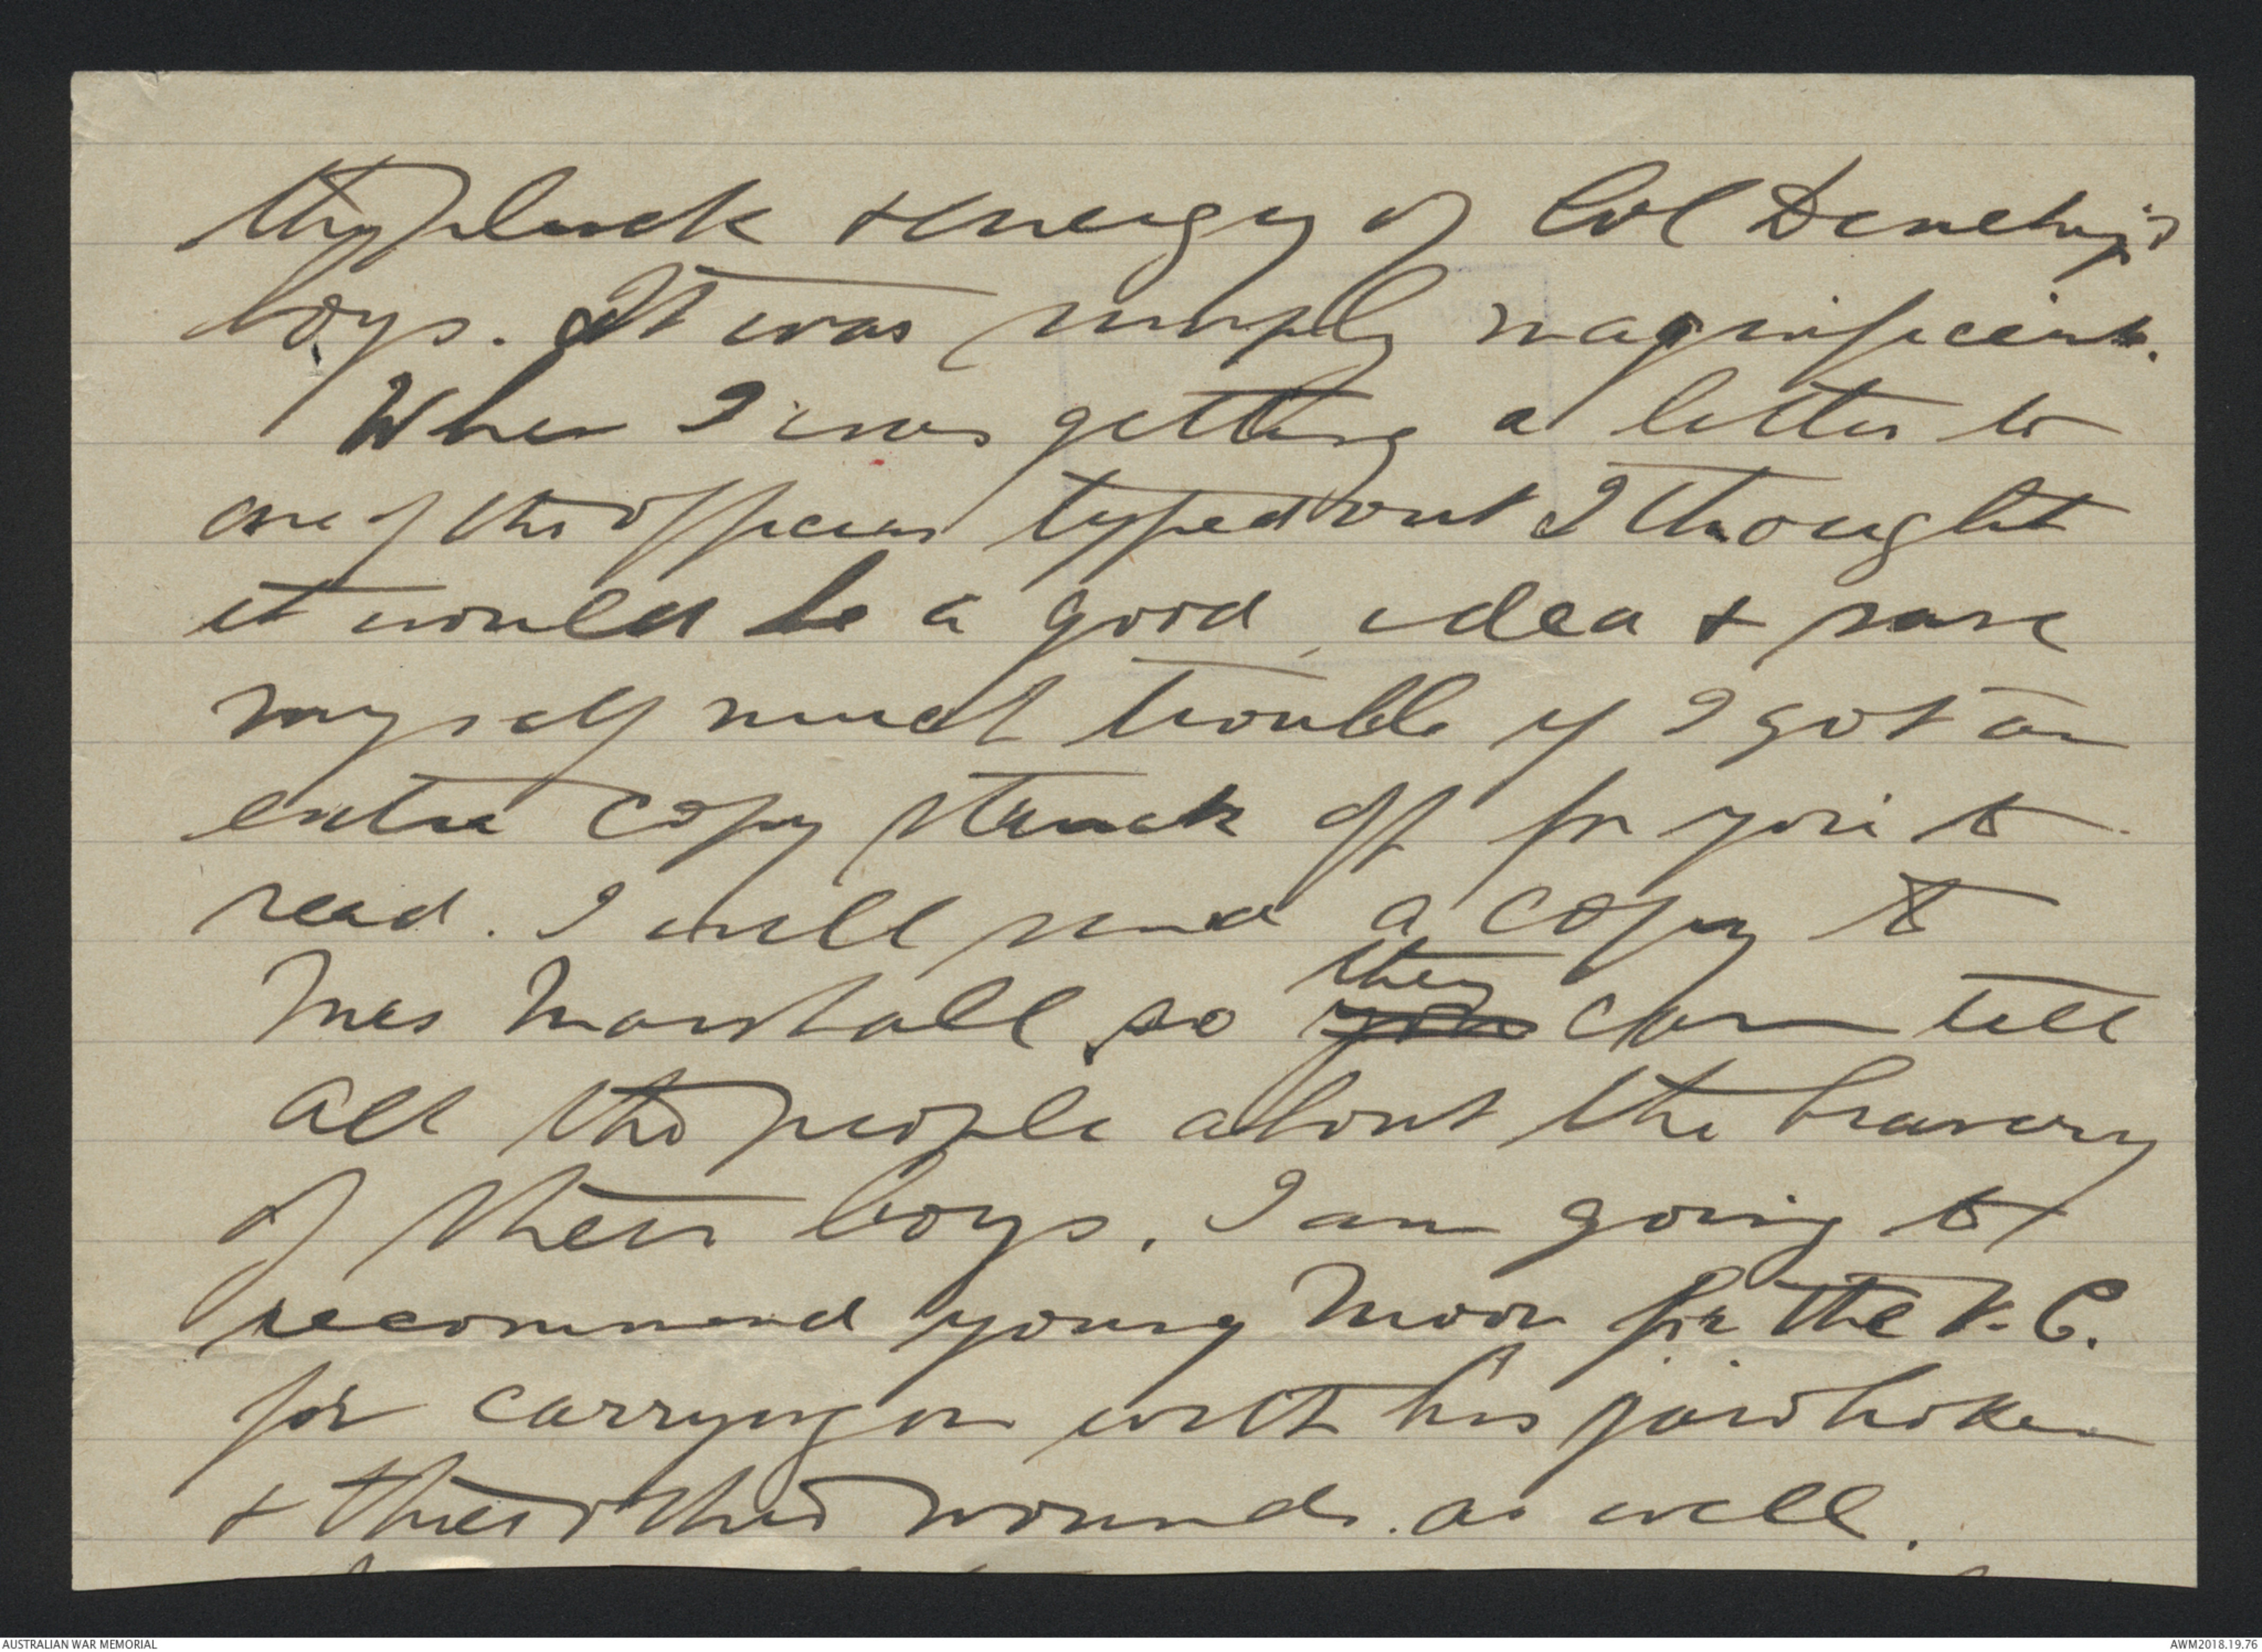 the pluck & energy of Col Denehy's
boys. It was simply magnificent.
When I was getting a letter to
one of the officers typed out I thought
it would be a good idea & save
myself much trouble if I got an
extra copy struck off for you to
read. I will send a copy to
Mrs Marshall so they can tell
all the people about the bravery
of their boys. I am going to
recommend young Moon for the V.C.
for carrying on with his jaw broken
& three other wounds as well.
AUSTRALIAN WAR MEMORIAL
AWM2018.19.76